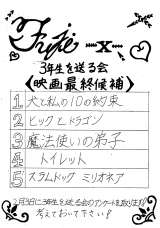 3年生を送る会
《映画最終候補》
1 犬と私の10の約束
2 ヒックとドラゴン
3 魔法使いの弟子
4 トイレット
5 スラムドッグ ミリオネア
考えておいて下さい!